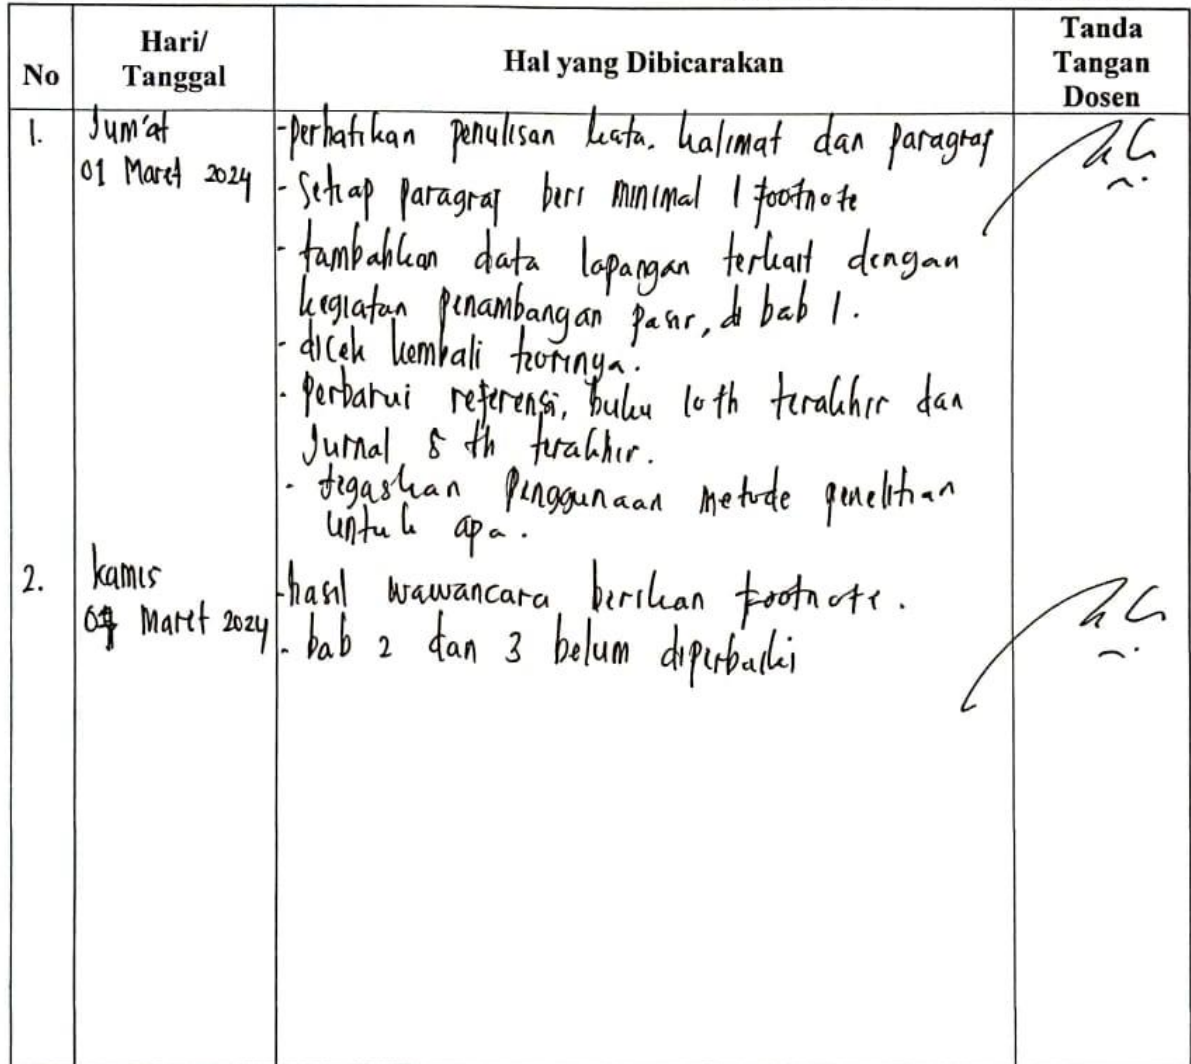 No
Hari/
Tanggal
Hal yang Dibicarakan
Tanda
Tangan
Dosen
1.
Jum'at
01 Maret 2024
- perhatikan penulisan kata, kalimat dan paragraf
- Setiap paragraf beri minimal 1 footnote
- tambahkan data lapangan terkait dengan
kegiatan penambangan pasir, di bab 1.
- dicek kembali teorinya.
- perbarui referensi, buku 10 th terakhir dan
Jurnal 5 th terakhir.
- tegaskan penggunaan metode penelitian
untuk apa.
2.
kamis
Maret 2024
- hasil wawancara berikan footnote.
- bab 2 dan 3 belum diperbaiki